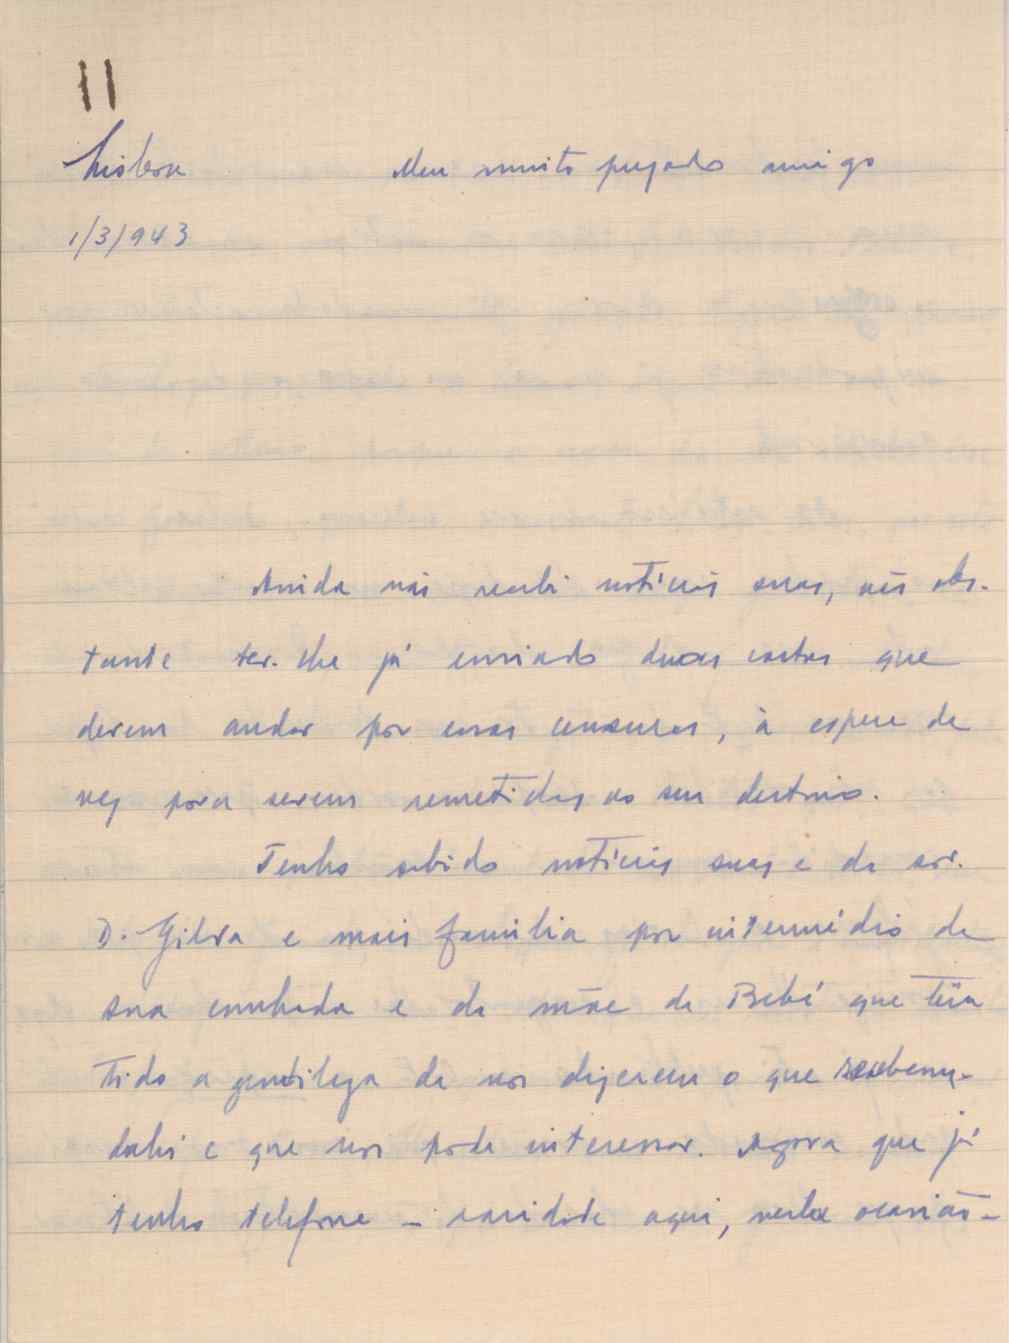 11
Lisboa Meu muito prezado amigo
1/3/943
Ainda não recebi notícias suas, não obs-
tante ter-lhe já enviado duas cartas que
devem andar por essas censuras, à espera de
vez para serem remetidas ao seu destino.
Tenho sabido notícias suas e da sr.
D. Gilda e mais família por intermédio de
sua cunhada e da mãe da Bebé que têm
tido a gentileza de nos dizerem o que recebem
dahi e que nos pode interessar. Agora que já
tenho telefone – raridade aqui, nesta ocasião –